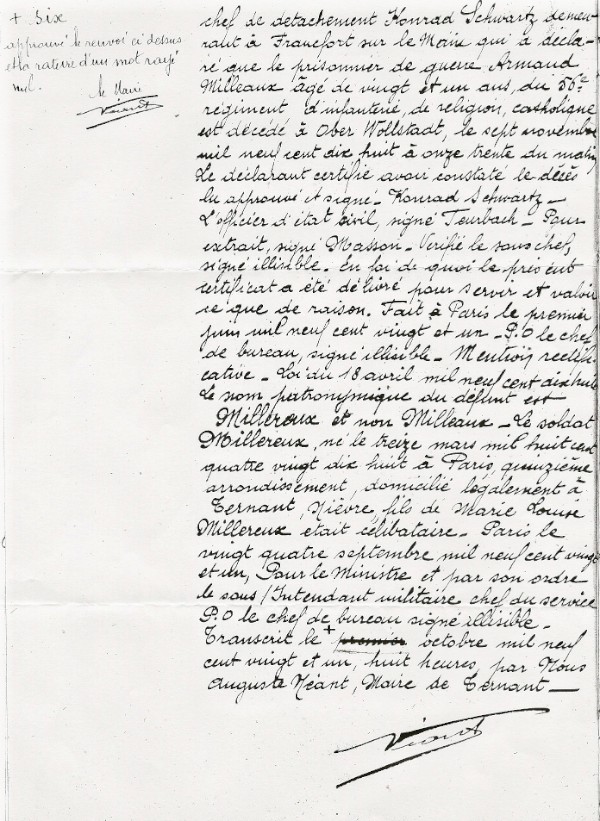 + Six
approuvé le renvoi ci dessus
et la rature d'un mot rayé
nul.
le Maire
chef de détachement Konrad Schwartz demeu
rant à Francfort sur le Main qui a décla-
ré que le prisonnier de guerre Armand
Milleaux âgé de vingt et un ans, du 56e
régiment d'infanterie, de religion, catholique
est décédé à Ober Wollstadt, le sept novembre
mil neuf cent dix huit à onze trente du matin
Le déclarant certifie avoir constaté le décès
lu approuvé et signé - Konrad Schwartz -
L'officier d'état civil, signé Feurbach - Pour
extrait, signé Masson - Vérifié le sous chef,
signé illisible - En foi de quoi le présent
certificat a été délivré pour servir et valoir
ce que de raison. Fait à Paris le premier
juin mil neuf cent vingt et un - P.O le chef
de bureau, signé illisible - Mention rectifi
cative - Loi du 18 avril mil neuf cent dix huit
Le nom patronymique du défunt est
Millereux et non Milleaux - Le soldat
Millereux, né le treize mars mil huit cent
quatre vingt dix huit à Paris, quinzième
arrondissement, domicilié légalement à
Ternant, Nièvre, fils de Marie Louise
Millereux etait célibataire - Paris le
vingt quatre septembre mil neuf cent vingt
et un, Pour le Ministre et par son ordre
le sous/Intendant militaire chef du service
P.O le chef de bureau signé illisible -
Transcrit le + premier octobre mil neuf
cent vingt et un, huit heures, par Nous
Auguste Néant, Maire de Ternant -